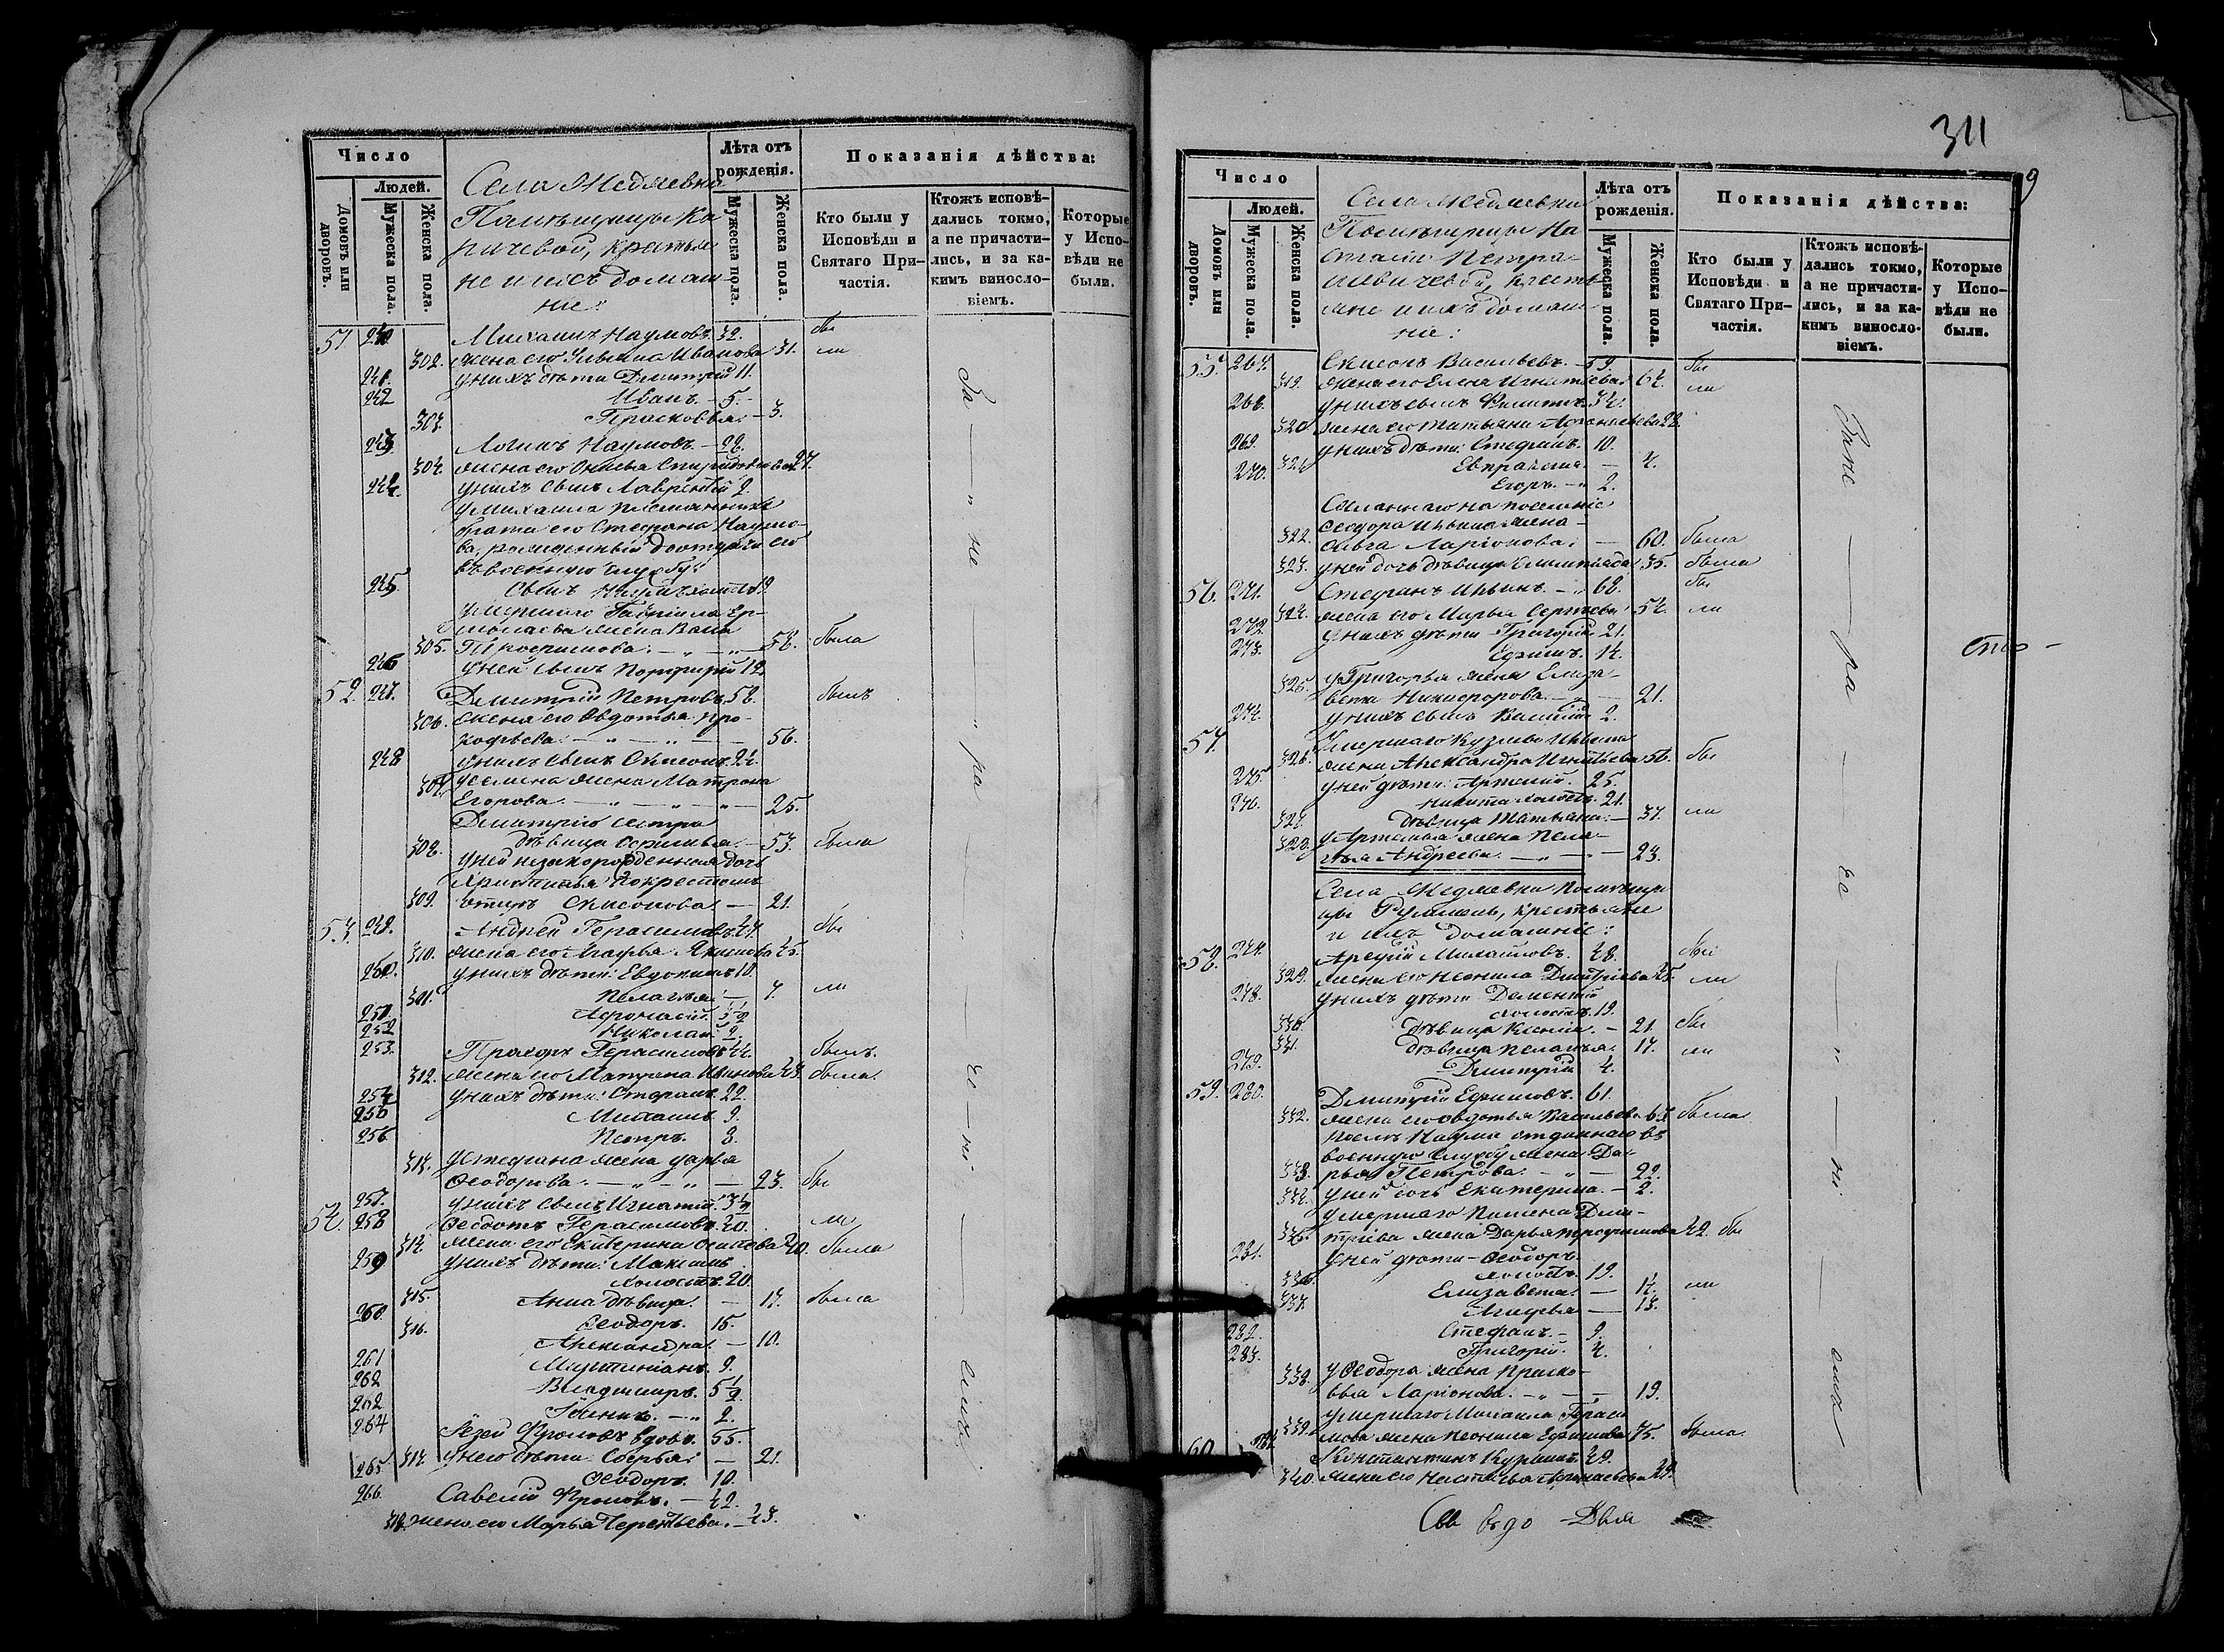 Число
Людей.
Домовъ или дворовъ.
Мужеска пола.
Женска пола.
Села Медяевки
Помѣщицы Ка
ричевой, крестья
не и ихъ домаш
ніе:
Лѣта отъ рожденія.
Мужеска пола.
Женска пола.
Показанія дѣйства:
Кто были у Исповѣди и Святаго Причастія.
Ктожъ исповѣдались токмо, а не причастились, и за какимъ винословіемъ.
Которые у Исповѣди не были.
51 240 Михаилъ Наумовъ. 32. бы
302. жена его Ульяна Иванова 31. ли
241. у нихъ дѣти Димитрій 11.
242 Иванъ. - 5. -
303. Прасковья. - 3.
243. Логинъ Наумовъ. - 28.
304. жена его Спиридонова 27.
244. у нихъ сынъ Лаврентій 2.
у Михаила племянникъ
брата его Стефана Наумо-
ва, рожденный до отдачи его
въ военную службу
245. сынъ 19.
умершаго Гавріила Ер-
молаева жена Васса
305. Трофимова. - „ - „ - 58. была
246 у ней сынъ Порфирій 19.
52. 247. Димитрій Петровъ. 58. былъ
306. жена его Авдотья Про-
кофьева. - „ - „ - 56.
248 у нихъ сынъ Симеонъ. 24.
307. у Семена жена Матрона
Егорова. - „ - „ - „ - 25.
Димитрію сестра
308. дѣвица 53. была
у ней незаконорожденная дочь
Христинья по крестномъ
309. отцѣ Симеонова. - 21.
53. 249. Андрей Герасимовъ. 47. бы
310. жена его Агафья Якимова 45.
250. у нихъ дѣти: Евдокимъ 10.
301. Пелагея. - 7. ли
251 Афанасій. 3 1/2
252 Николай. 2.
253. Прохоръ Герасимовъ 44. былъ.
312. жена его Матрена Иванова 43. была.
254 у нихъ дѣти: Стефанъ. 22.
255 Михаилъ 9.
256 Петръ. 3.
313. у Стефана жена Дарья
Ѳеодорова. - „ - „ - 23. бы
257. у нихъ сынъ Игнатій. 3 1/2
54. 258 Ѳедотъ Герасимовъ. 40. ли
314. жена его Екатерина Осипова 40. была
259 у нихъ дѣти: Максимъ
холостъ. 20.
315. Анна дѣвица. - 17. была
260. Ѳеодоръ. 15.
316. Александра. - 10.
261 Мартиніанъ. 9.
262 Владиміръ. 5 1/2
262 2.
264 Фроловъ вдовъ. 55.
317. у него дѣти: Софья: - 21.
265 Ѳеодоръ. 10.
266. Савелій Фроловъ. - 42.
318. жена его Марья Терентьева. - 43.
За - „ не - „ ра - „ че - ні - емъ.
311
9
Число
Людей.
Домовъ или дворовъ.
Мужеска пола.
Женска пола.
Села Медяевки
Помѣщицы На
стасіи Петра-
шкевичевой, кресть
яне и ихъ домаш
ніе:
Лѣта отъ рожденія.
Мужеска пола.
Женска пола.
Показанія дѣйства:
Кто были у Исповѣди и Святаго Причастія.
Ктожъ исповѣдались токмо, а не причастились, и за какимъ винословіемъ.
Которые у Исповѣди не были.
55. 267. Симеонъ Васильевъ. - 59. бы
319. жена его Елена Игнатіева. 64. ли
268. у нихъ сынъ Филиппъ. 34.
320. жена его Татьяна Афанасьева 28.
269. у нихъ дѣти: Стефанъ. 10.
321. Евпраксія. - 4.
270. Егоръ. - „ 2.
Сосланнаго на поселеніе
Ѳеодора Ильина жена
322. Ольга Ларіонова. - 60. была
323. у ней дочь дѣвица Олимпіада 35. была
56. 271. Стефанъ Ильинъ. - „ 68. бы
324. жена его Марья Сергѣева 54. ли
272. у нихъ дѣти Григорій 21.
273. Ефимъ. 14.
325. у Григорья жена Елиза-
вета Никифорова. - „ - 21.
274. у нихъ сынъ Василій 2.
57. Умершаго Кузьмы Ильина
326. жена Александра Игнатьева 56. бы
275. у ней дѣти: Артемій. 25.
276. Никита холостъ. 21.
327. дѣвица Татьяна. - 37. ли
328. у Артемья жена Пела-
гея Андреева. - „ - 23.
Села Медяевки Помѣщи
цы крестьяне
и ихъ домашніе:
58. 277. Арефій Михайловъ. 48. бы
329. жена его Неонила Димитріева 45. ли
278. у нихъ дѣти Дементій
холостъ. 19.
330. дѣвица Ксенія. - 21. бы
331. дѣвица Пелагья. 17. ли
279. Димитрій 4.
59. 280. Димитрій Ефимовъ. 61.
332. жена его Авдотья Васильева 63 была
Наума отданнаго въ
военную службу жена Да-
333. рья Петрова. - „ - 22.
334. у ней дочь Екатерина. - 2.
умершаго Пимена Дми-
335. тріева жена Дарья Трофимова 42. бы
281. у ней дѣти - Ѳеодоръ
холостъ. 19.
336. Елизавета. - 17. ли
337. Агафья - 13.
282. Стефанъ. - 9.
283. Григорій. 4.
338. у Ѳеодора жена Праско-
вья Ларіонова. - „ - 19.
умершаго Михаила Гераси
339. мова жена Неонила Ефимова 75. была.
60. Константинъ Кузминъ. 49.
340. жена его Настасья 49.
За не - ра - че - „ - ні - емъ